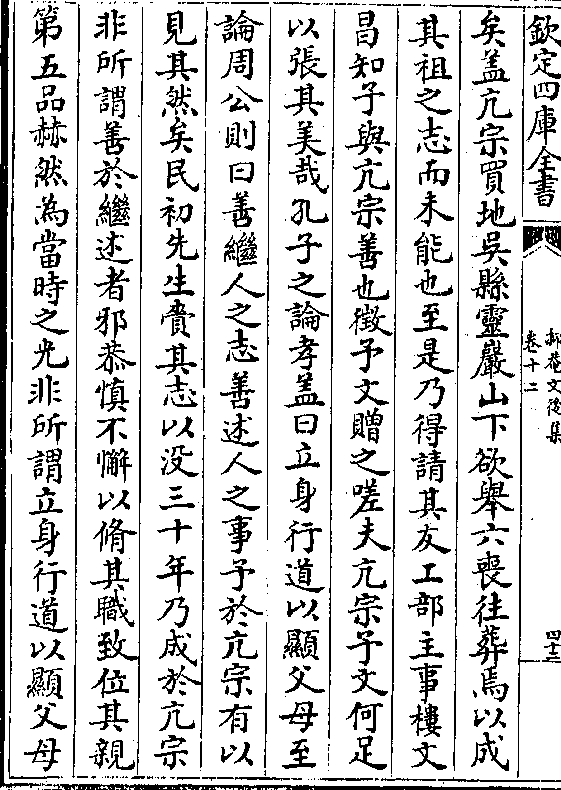 欽定四庫全書
抑菴文後集
卷十二
四十二
矣盖亢宗買地吳縣靈巖山下欲舉六喪往葬焉以成
其祖之志而未能也至是乃得請其友工部主事樓文
昌知予與亢宗善也徴予文贈之嗟夫亢宗予文何足
以張其美哉孔子之論孝盖曰立身行道以顯父母至
論周公則曰善繼人之志善述人之事予於亢宗有以
見其然矣民初先生賷其志以没三十年乃成於亢宗
非所謂善於繼述者邪恭慎不懈以脩其職致位其親
第五品赫然為當時之光非所謂立身行道以顯父母